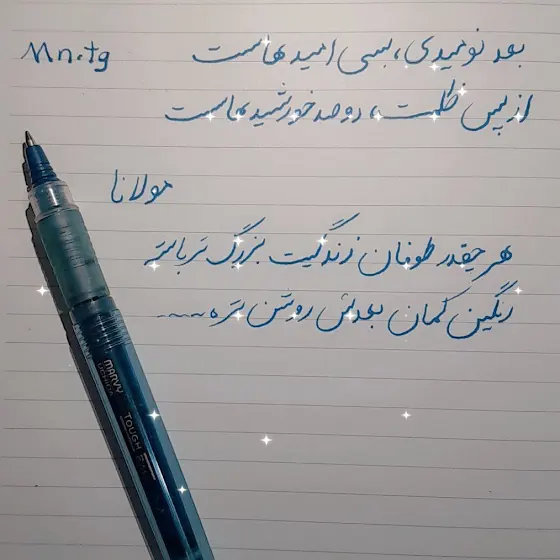 Mn.tg
بعد نومیدی، بسی امیدهاست
از پس ظلمت، دوصد خورشیدهاست
مولانا
هر چقدر طوفان زندگیت بزرگ تر باشه
رنگین کمان بعدش روشن تره....
MARVY
UCHIDA
TOUGH